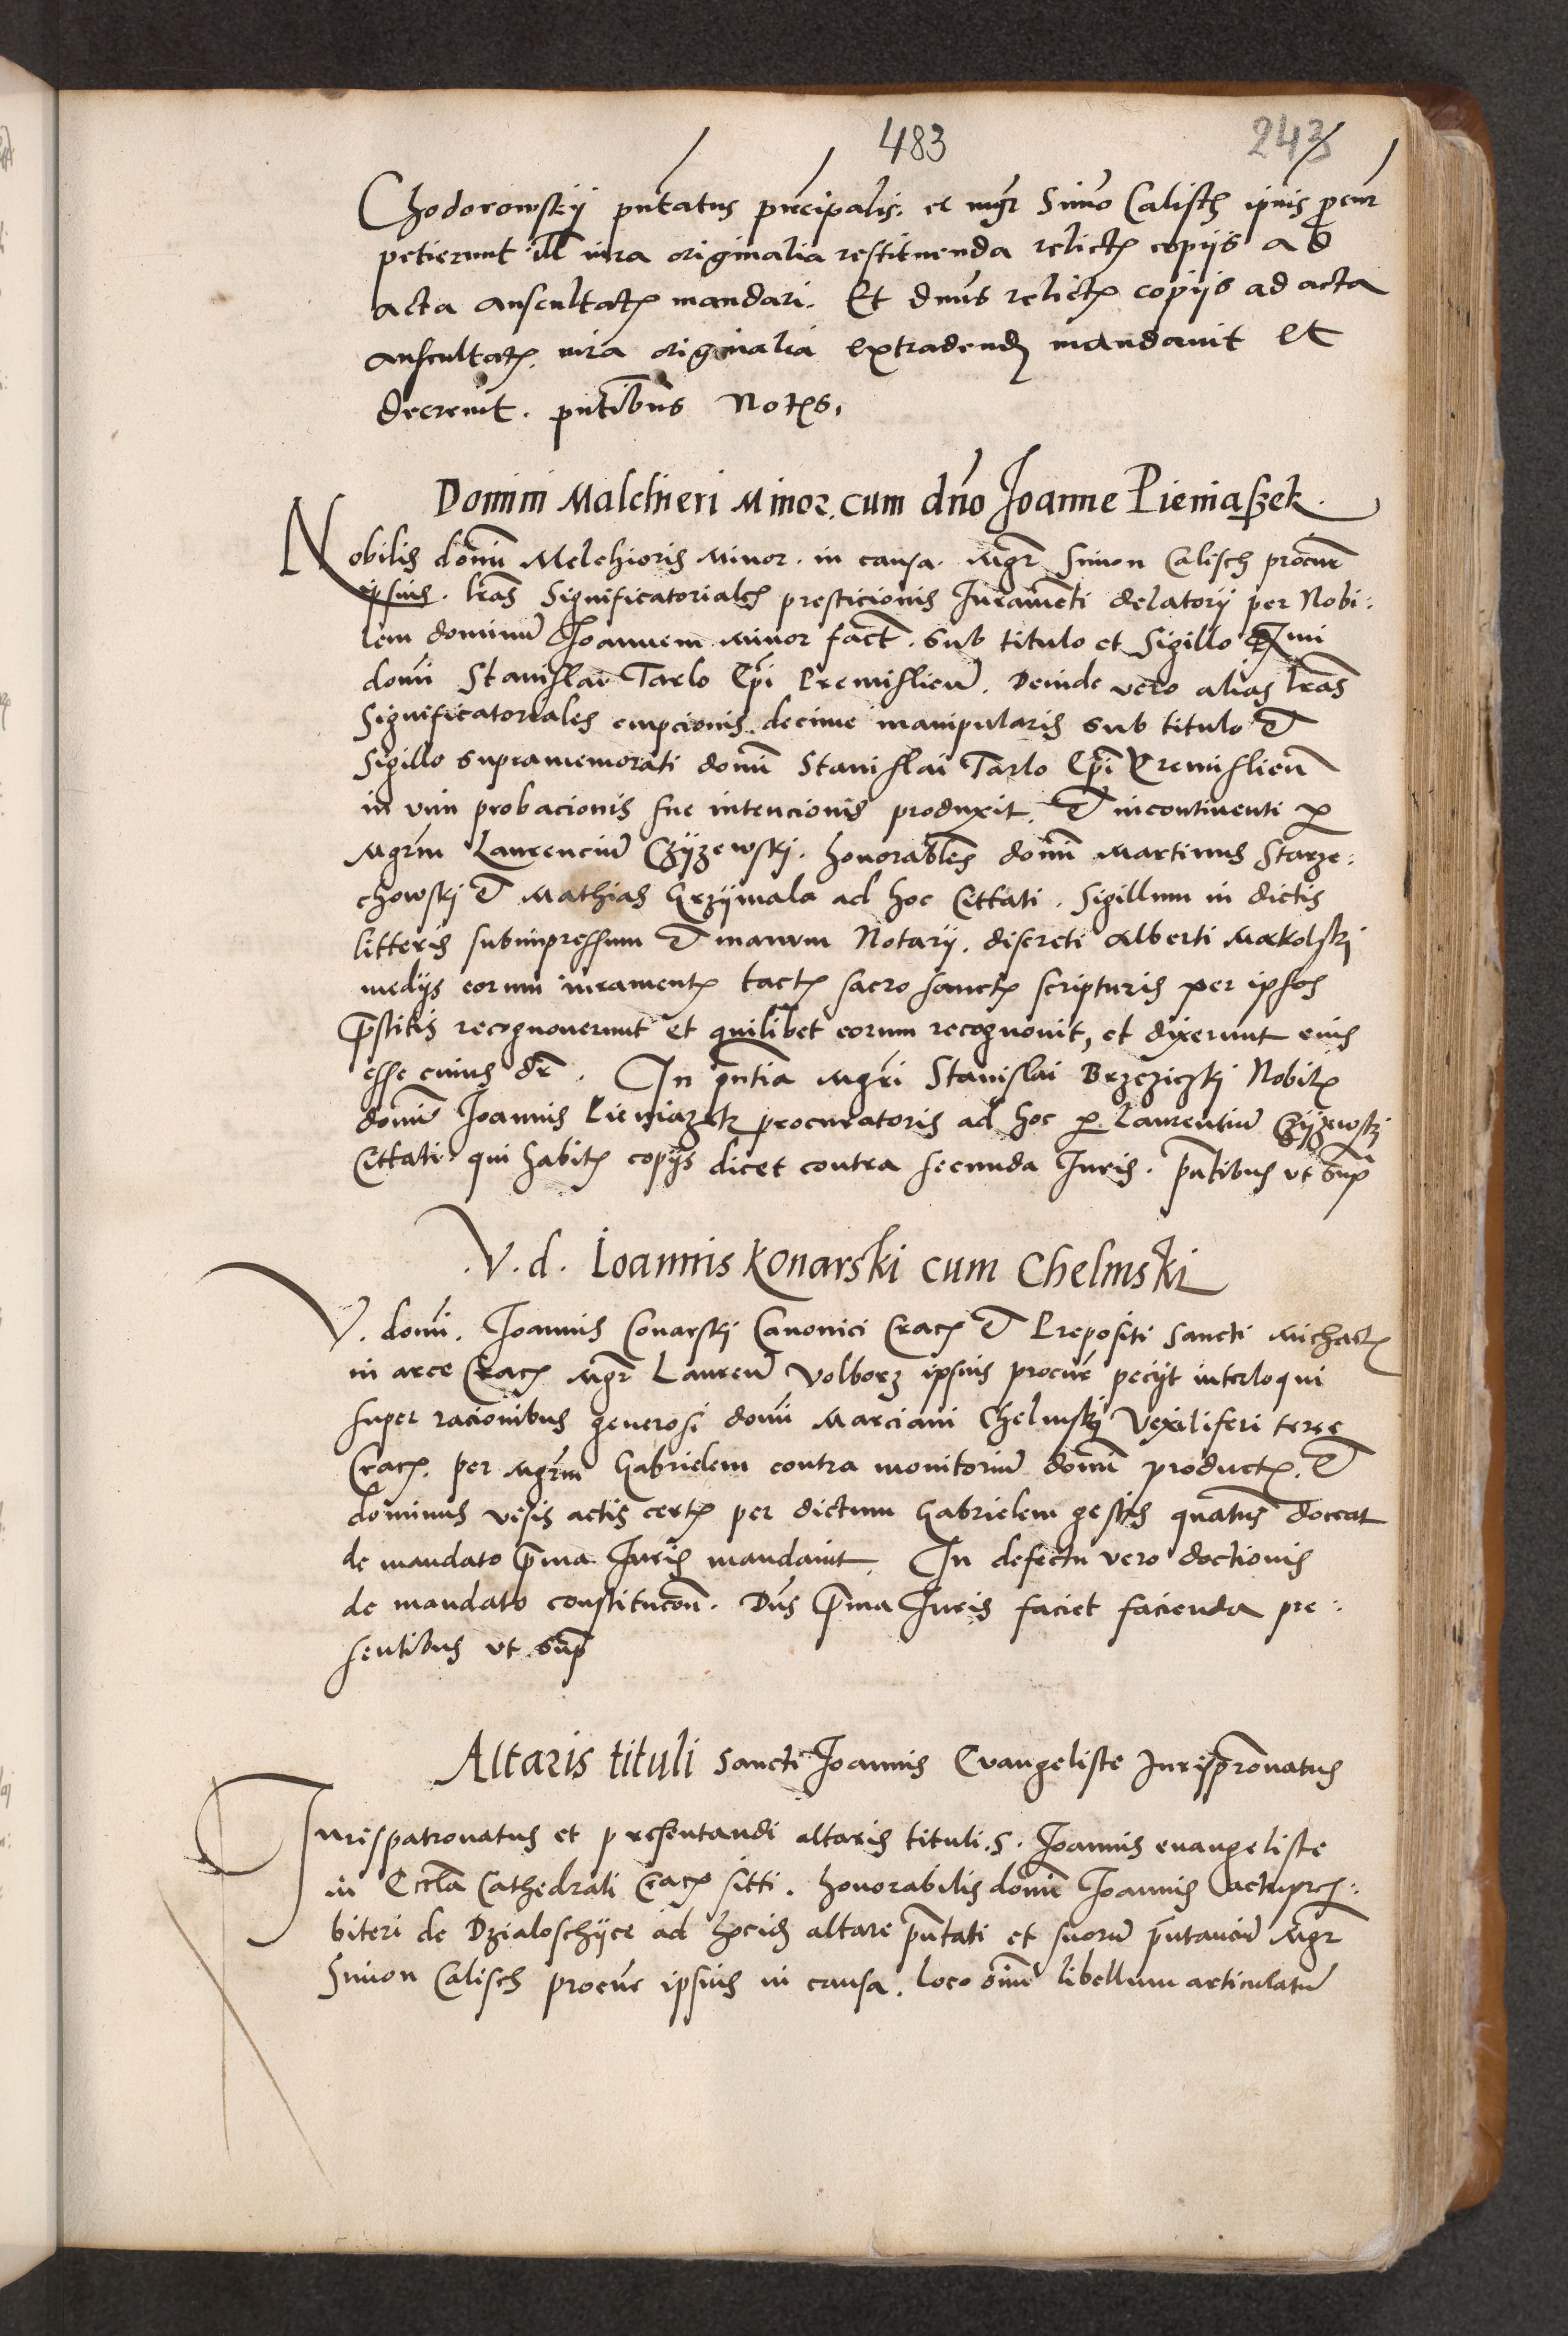 483 243
Chodorowskÿ pñtatus pñcipalis. et mgr̃ Simõ Calisch ipius p̃cur
petierunt ill iura originalia restituenda relictꝭ copijs ad
acta auscultatꝭ mandari. Et dnũs relictꝭ copijs ad acta
auscultatꝭ iura originalia extradendꝭ mandauit et
decreuit. pñtibus Notꝭs,
Domini Malchieri Minor cum dño Joanne Pieniaszek.
Nobilis domĩ Melchioris Minor in causa. Mgr̃ Simon Calisch procur̃
ipsius. lr̃as Significatoriales presticionis Iuramẽti delatorÿ per Nobi:
lem dominũ Joannem Minor fact̃. sub titulo et Sigillo mi
domĩ Stanislai Tarlo Ep̃i Premislieñ. Deinde vero alias lr̃as
Significatoriales empcionis decime manipularis sub titulo et
Sigillo supramemorati domĩ Stanislai Tarlo Ep̃i Premislieñ
in vim probacionis sue intencionis produxit. Et incontinenti ꝑ
Mgr̃m Laurenciũ Czÿzewski. honorables domĩ Martinus Starze:
chowskj et Mathias Grzÿmala ad hoc Cittati. Sigillum in dictis
litteris subimpressum et manum Notarÿ. discreti Alberti Makolskj
medijs eorum iuramentꝭ tactꝭ sacro sanctꝭ scripturis per ipsos
p̃stitis recognouerunt et quilibet eorum recognouit, et dixerunt eius
esse cuius dr̃. In p̃ntia Mgr̃i Stanislai Brzeziczkj Nobilꝭ
domĩ Joannis Pieniazek procuratoris ad hoc ꝑ Laurentiũ Czÿzewskj
Cittati. qui habitꝭ copÿs dicet contra secunda Iuris. p̃ntibus vt sup̃
V. d. Ioannis Konarski cum Chelmski
V. domĩ. Joannis Conarskj Canonici Cracꝭ et Prepositi sancti Michaelꝭ
in arce Cracꝭ Mgr̃ Laureñ Volborz ipsius procur̃ pecÿt interloqui
super racionibus generosi domĩ Marciani Chelmskj Vexiliferi terre
Cracꝭ. per Mgr̃m Gabrielem contra monitoriũ domĩ productꝭ. Et
dominus visis actis certꝭ per dictum Gabrielem gestis quatũs doceat
de mandato p̃ma Iuris mandauit. In defectu vero doctionis
de mandato constitucoñ. Dũs p̃ma Iuris faciet facienda pre:
sentibus vt sup̃
Altaris tituli sancti Joannis Euangeliste Iurispr̃onatus
Iurispatronatus et presentandi altaris tituli. S. Joannis euangeliste
in Eccl̃a Cathedrali Cracꝭ sitti. honorabilis domĩ Joannis actupres:
biteri de Dzialoschÿce ad hocid altare p̃ntati et suorũ p̃ntanciũ Mgr̃
Simon Calisch procur̃ ipsius in causa. loco oĩm libellum articulatũ